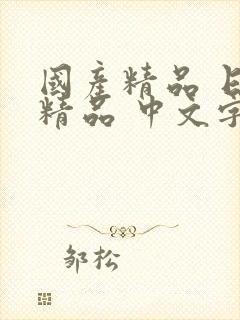 國產精品
精品 中文字
邹松